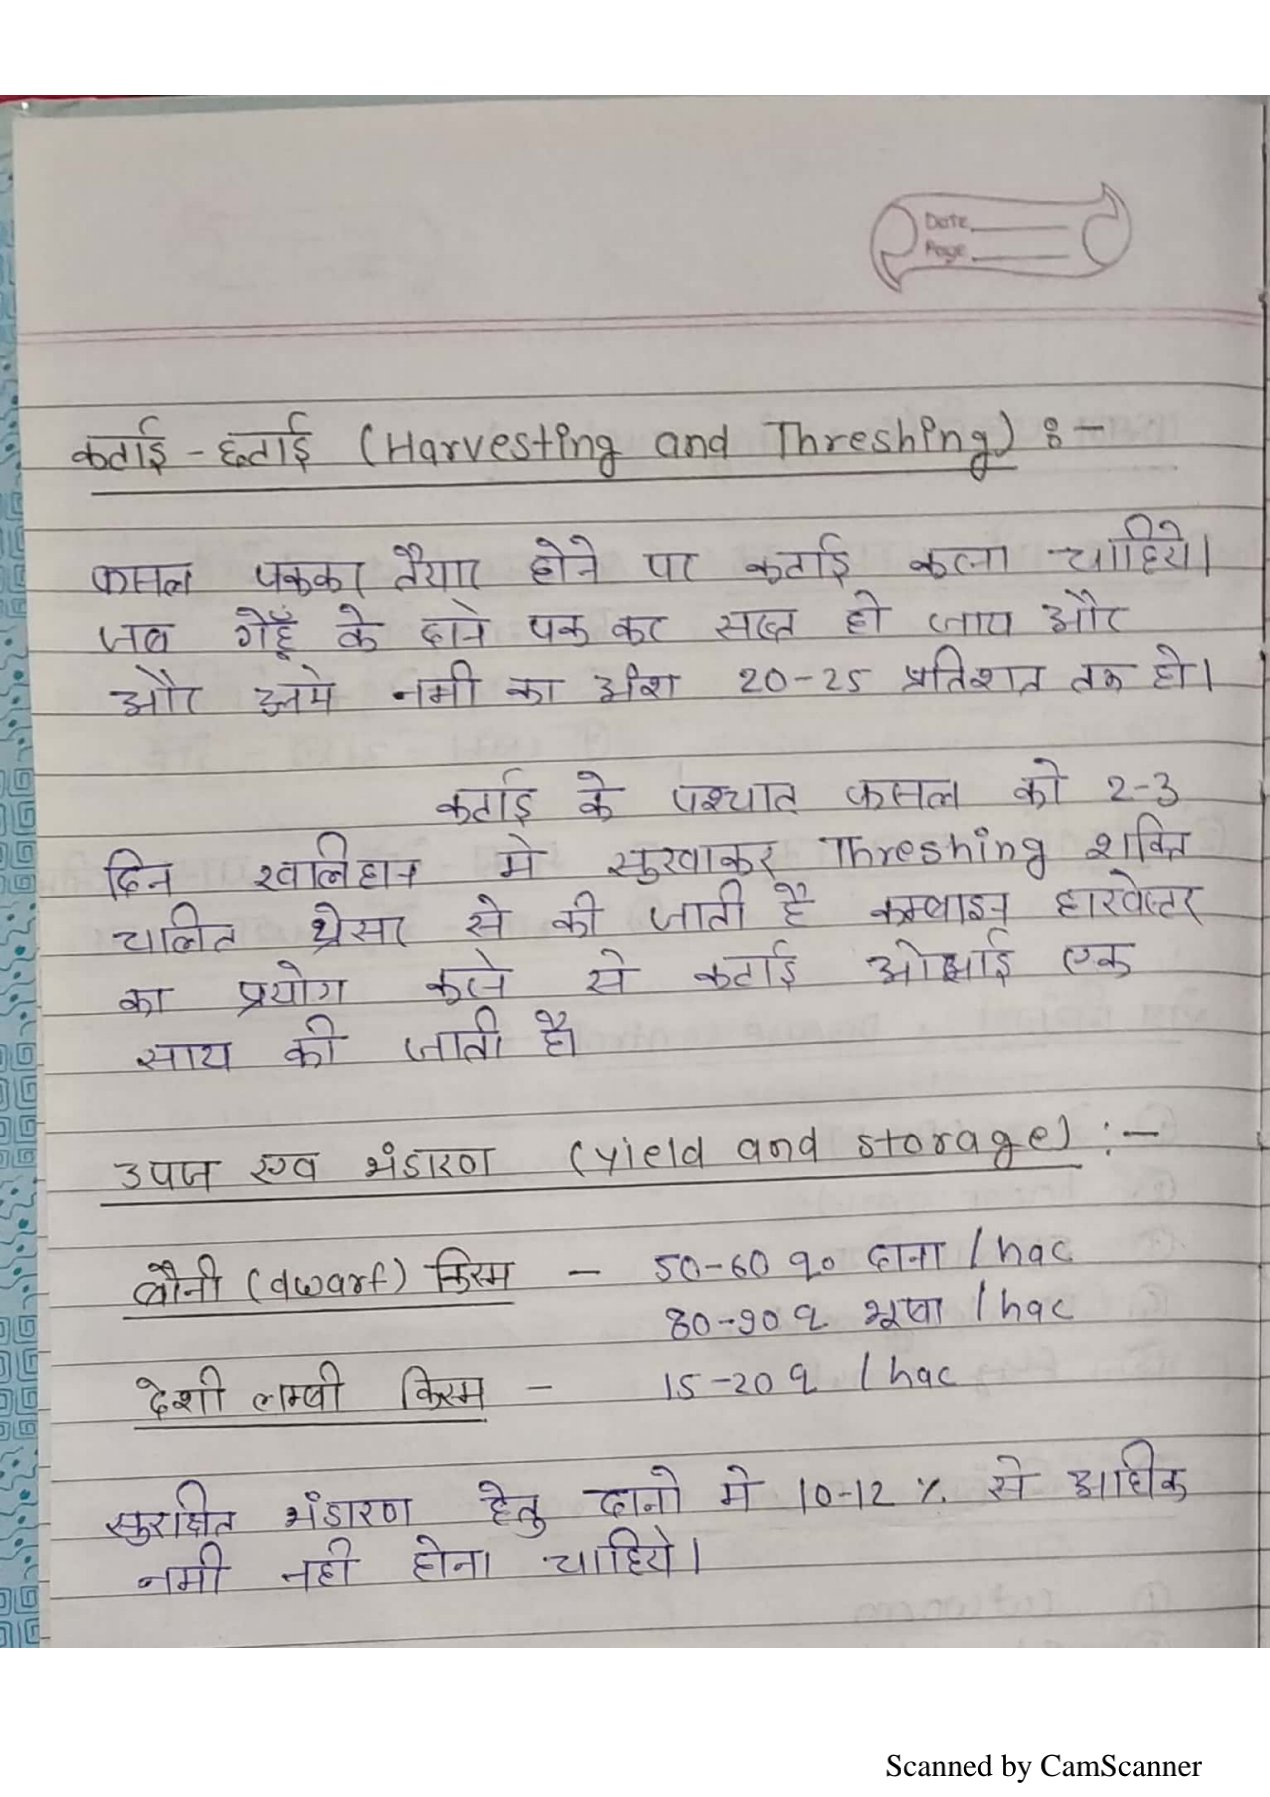 Date
Page
कटाई - छटाई (Harvesting and Threshing) :-
फसल पककर तैयार होने पर कटाई करना चाहिये।
जब गेहूँ के दाने पक कर सख्त हो जाय और
और उनमे नमी का अंश 20-25 प्रतिशत तक हो।
कटाई के पश्चात फसल को 2-3
दिन खलिहान मे सुखाकर Threshing शक्ति
चालित थ्रेसर से की जाती है कम्बाइन हारवेस्टर
का प्रयोग करने से कटाई ओसाई एक
साथ की जाती है।
उपज एव भंडारण (yield and storage) :-
बौनी (dwarf) किस्म - 50-60 q० दाना / hac
80-90 q भूषा / hac
देशी लम्बी किस्म - 15-20 q / hac
सुरक्षित भंडारण हेतु दानो मे 10-12 % से अधिक
नमी नही होना चाहिये।
Scanned by CamScanner